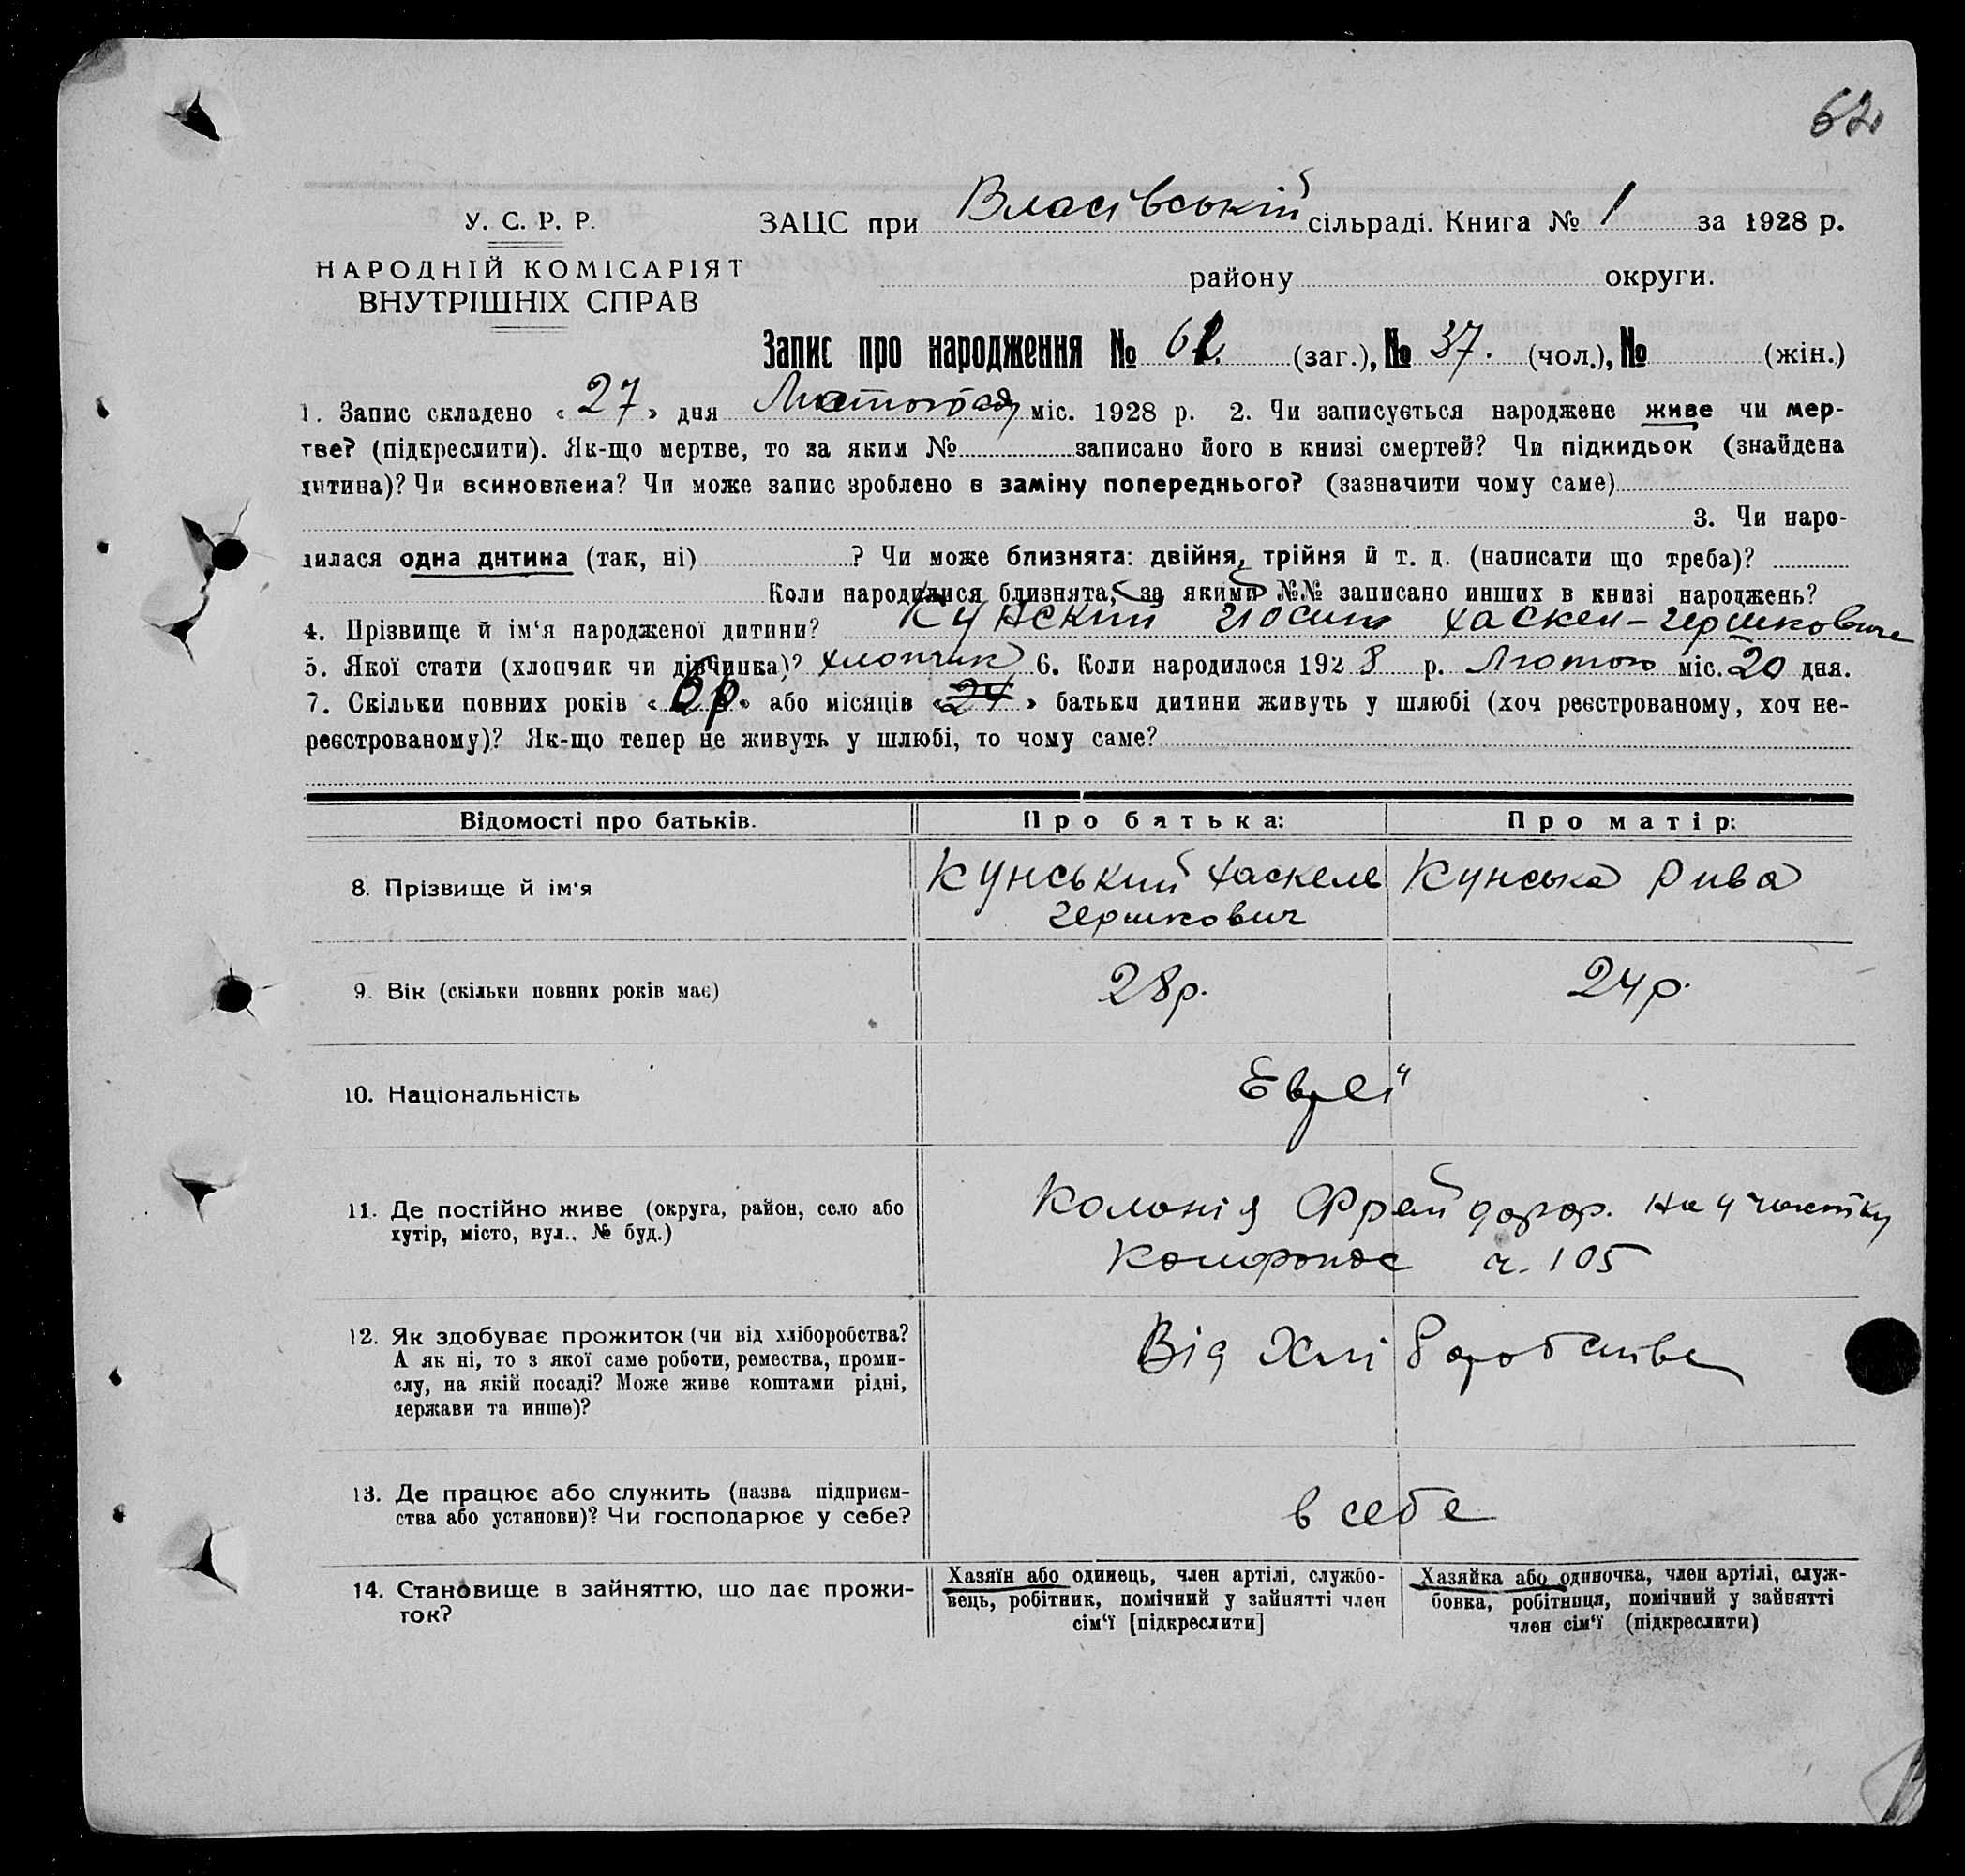 62
У. С. Р. Р.
НАРОДНІЙ КОМІСАРІЯТ
ВНУТРІШНІХ СПРАВ
ЗАЦС при Власівській сільраді. Книга № 1 за 1928 р.
району округи.
Запис про народження № 62. (заг.), № 37. (чол.), № (жін.)
1. Запис складено « 27 » дня міс. 1928 р. 2. Чи записується народжене живе чи мер-
тве? (підкреслити). Як-що мертве, то за яким № записано його в книзі смертей? Чи підкидьок (знайдена
дитина)? Чи всиновлена? Чи може запис зроблено в заміну попереднього? (зазначити чому саме)
3. Чи наро-
дилася одна дитина (так, ні) ? Чи може близнята: двійня, трійня й т. д. (написати що треба)?
Коли народилися близнята, за якими №№ записано инших в книзі народжень?
4. Прізвище й ім‘я народженої дитини? Кунский Иосип Хаскел-Гершкович
5. Якої стати (хлопчик чи дівчинка)? хлопчик 6. Коли народилося 1928 р. Лютого міс. 20 дня.
7. Скільки повних років « 6р » або місяців « 24 » батьки дитини живуть у шлюбі (хоч реєстрованому, хоч не-
реєстрованому)? Як-що тепер не живуть у шлюбі, то чому саме?
Відомості про батьків. Про батька: Про матір:
8. Прізвище й ім‘я Кунський Хаскель Кунська Рива
Гершкович
9. Вік (скільки повних років має) 28р. 24р.
10. Національність Евреї
11. Де постійно живе (округа, район, село або Колонія Фрайдорф. на участку
хутір, місто, вул., № буд.) ч. 105
12. Як здобуває прожиток (чи від хліборобства? Від Хліборобства
А як ні, то з якої саме роботи, ремества, проми-
слу, на якій посаді? Може живе коштами рідні,
держави та инше)?
13. Де працює або служить (назва підприєм- в себе
ства або установи)? Чи господарює у себе?
14. Становище в зайняттю, що дає прожи- Хазяїн або одинець, член артілі, службо- Хазяйка або одиночка, член артілі, служ-
ток? вець, робітник, помічний у зайнятті член бовка, робітниця, помічний у зайнятті
сім‘ї [підкреслити] член сім‘ї (підкреслити)